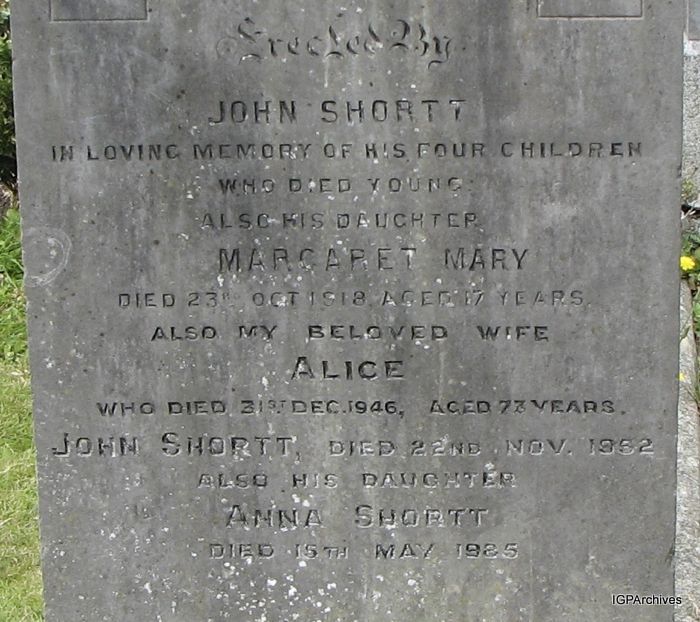 Erected By
JOHN SHORTT
IN LOVING MEMORY OF HIS FOUR CHILDREN
WHO DIED YOUNG.
ALSO HIS DAUGHTER
MARGARET MARY
DIED 23RD OCT 1918, AGED 17 YEARS.
ALSO MY BELOVED WIFE
ALICE
WHO DIED 31ST DEC. 1946, AGED 73 YEARS.
JOHN SHORTT, DIED 22ND NOV. 1952
ALSO HIS DAUGHTER
ANNA SHORTT
DIED 15TH MAY 1985
IGPArchives